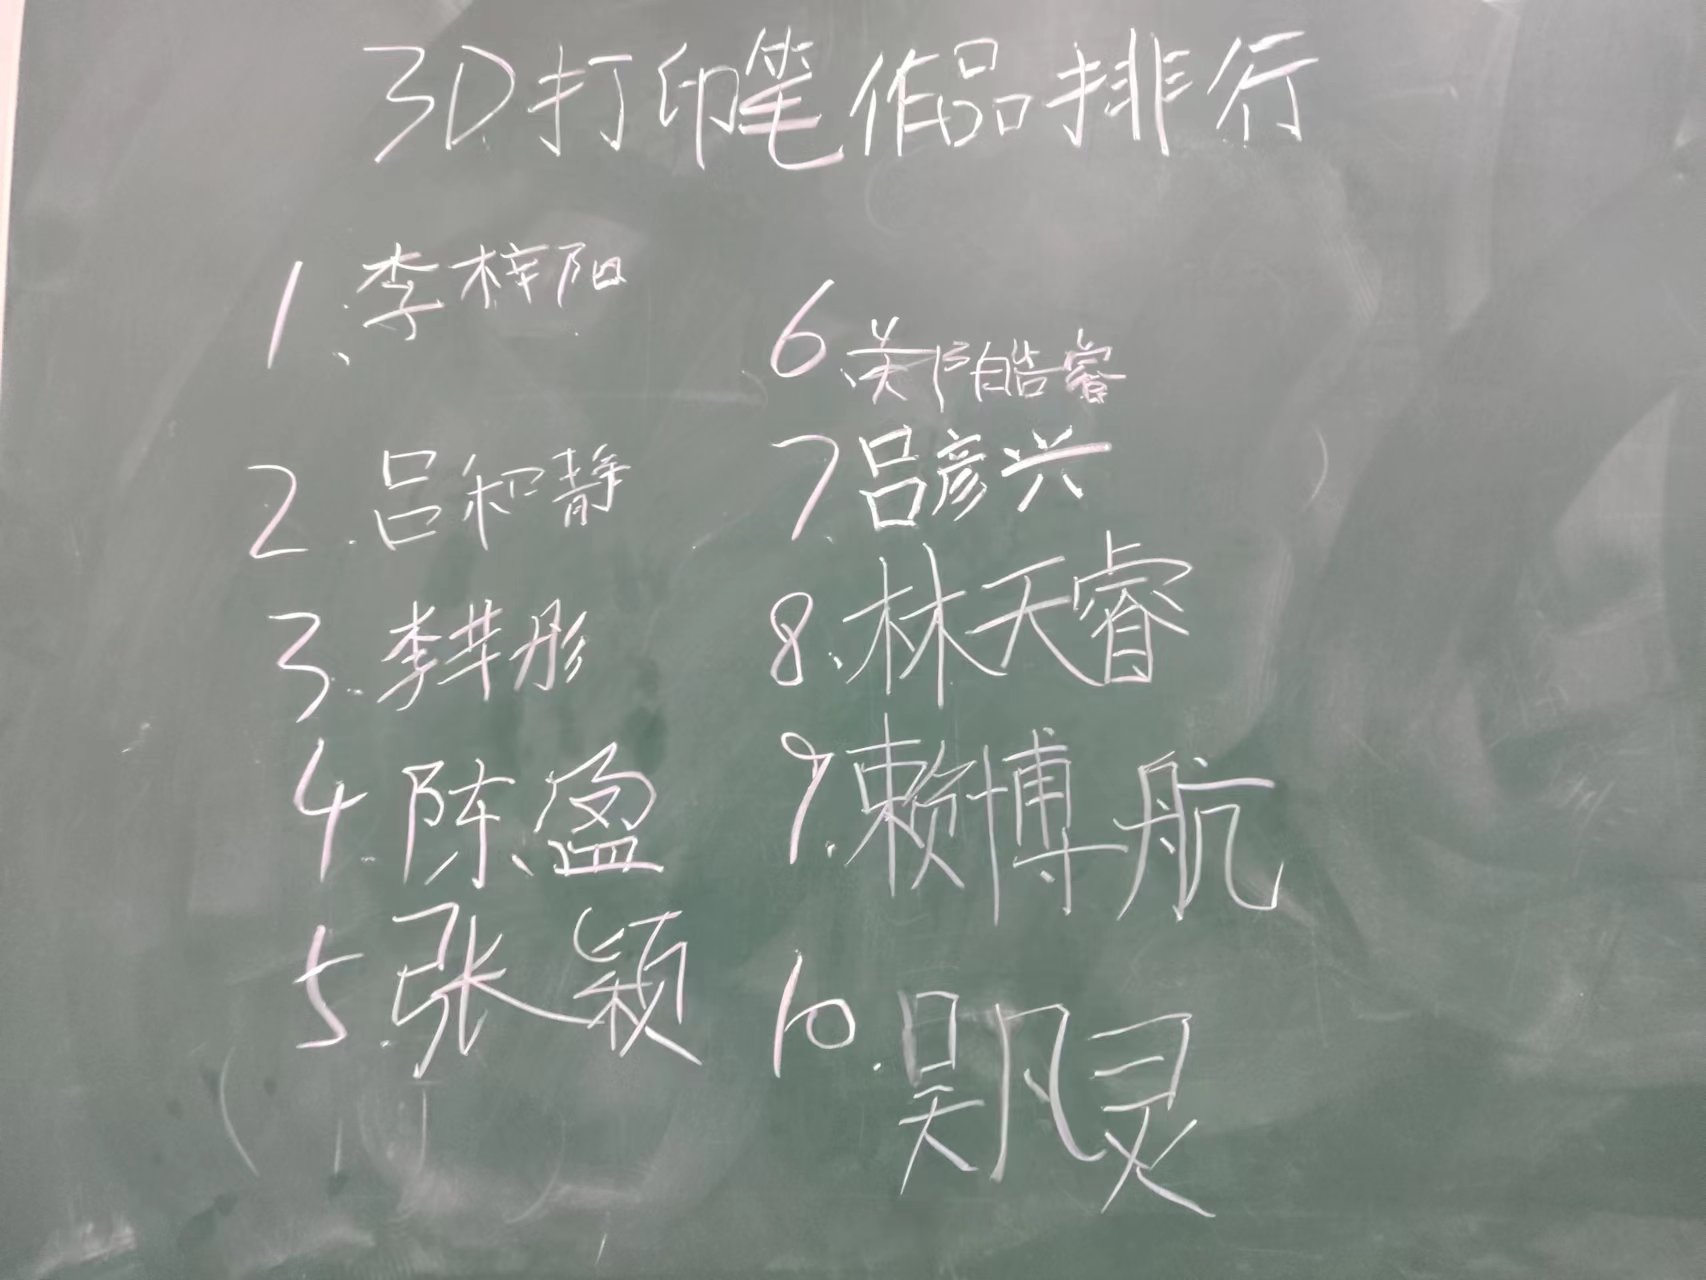 3D打印笔作品排行
1、李梓阳
2.吕和静
3.李芊彤
4.陈盈
5.张颖
6、关阳皓睿
7.吕彦兴
8、林天睿
9.赖博航
10.吴凡灵